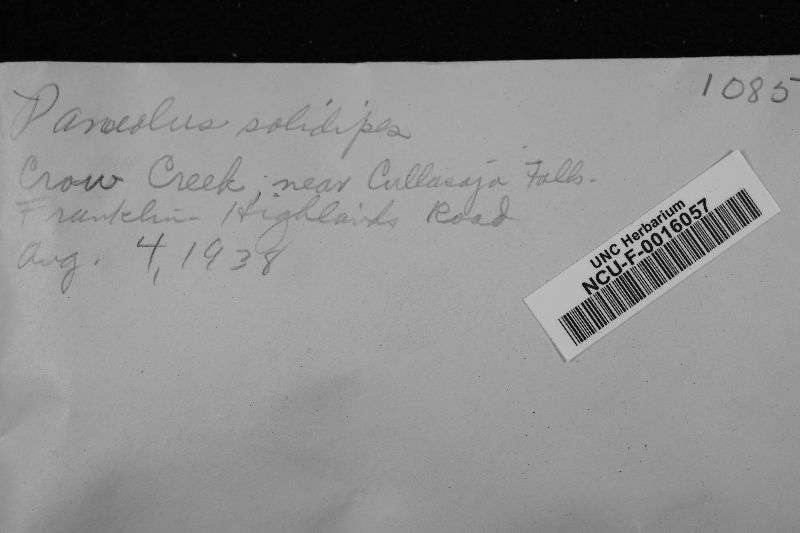 1085
Panaeolus solidipes
Crow Creek, near Cullasaja Falls-
Franklin-Highlands Road
Aug. 4, 1938
UNC Herbarium
NCU-F-0016057